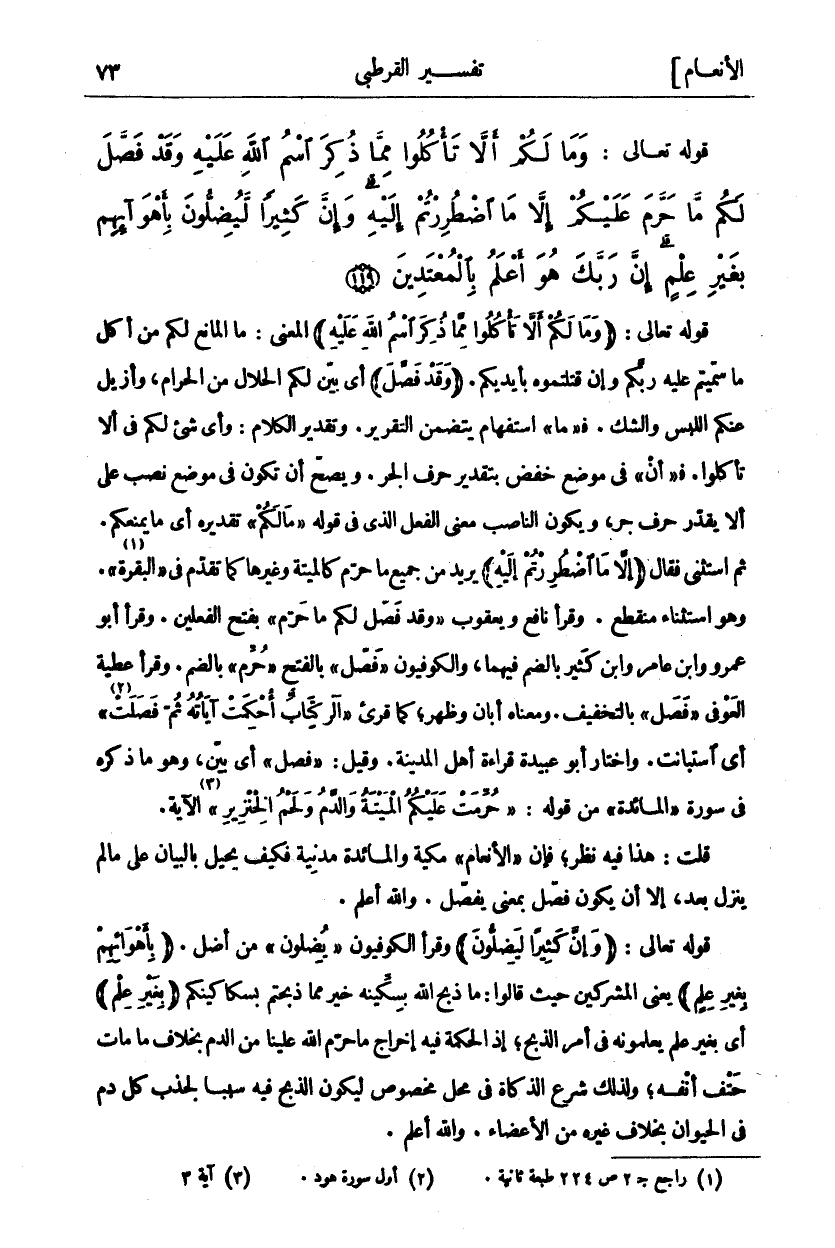 الأنعام] تفسير القرطبى ٧٣
قوله تعالى : وَمَا لَكُمْ أَلَّا تَأْكُلُوا مِمَّا ذُكِرَ ٱسْمُ ٱللَّهِ عَلَيْهِ وَقَدْ فَصَّلَ
لَكُم مَّا حَرَّمَ عَلَيْكُمْ إِلَّا مَا ٱضْطُرِرْتُمْ إِلَيْهِ ۗ وَإِنَّ كَثِيرًا لَّيُضِلُّونَ بِأَهْوَآئِهِم
بِغَيْرِ عِلْمٍ ۗ إِنَّ رَبَّكَ هُوَ أَعْلَمُ بِٱلْمُعْتَدِينَ ﴿١١٩﴾
قوله تعالى : ﴿وَمَا لَكُمْ أَلَّا تَأْكُلُوا مِمَّا ذُكِرَ ٱسْمُ اللهِ عَلَيْهِ﴾ المعنى : ما المانع لكم من أكل
ما سمّيتم عليه ربَّكم وإن قتلتموه بأيديكم. ﴿وَقَدْ فَصَّلَ﴾ أى بيّن لكم الحلال من الحرام، وأزيل
عنكم اللبس والشك . فـ«ما» استفهام يتضمن التقرير. وتقدير الكلام : وأى شئ لكم فى ألا
تأكلوا. فـ«أنْ» فى موضع خفض بتقدير حرف الجر. ويصحّ أن تكون فى موضع نصب على
ألا يقدّر حرف جر، ويكون الناصب معنى الفعل الذى فى قوله «مَالَكُمْ» تقديره أى ما يمنعكم.
ثم استثنى فقال ﴿إِلَّا مَا ٱضْطُرِرْتُمْ إِلَيْهِ﴾ يريد من جميع ما حرّم كالميتة وغيرها كما تقدّم فى «البقرة»(١).
وهو استثناء منقطع . وقرأ نافع ويعقوب «وقد فَصّل لكم ما حَرّم» بفتح الفعلين . وقرأ أبو
عمرو وابن عامر وابن كَثير بالضم فيهما، والكوفيون «فَصّل» بالفتح «حُرّم» بالضم. وقرأ عطية
العَوْفى «فَصَل» بالتخفيف. ومعناه أبان وظهر؛ كما قرئ «آلر كِتَابٌ أُحْكِمَتْ آيَاتُهُ ثُمّ فَصَلَتْ»(٢)
أى ٱستبانت. واختار أبو عبيدة قراءة أهل المدينة. وقيل: «فصل» أى بيّن، وهو ما ذكره
فى سورة «المائدة» من قوله : «حُرِّمَتْ عَلَيْكُمُ الْمَيْتَةُ وَالدَّمُ وَلَحْمُ الْخِنْزِيرِ»(٣) الآية.
قلت : هذا فيه نظر؛ فإن «الأنعام» مكية والمائدة مدنِية فكيف يحيل بالبيان على مالم
ينزل بعد، إلا أن يكون فصّل بمعنى يفصّل . والله أعلم .
قوله تعالى : ﴿وَإِنَّ كَثِيرًا لَيَضِلُّونَ﴾ وقرأ الكوفيون «يُضلون» من أضل . ﴿بِأَهْوَائِهِمْ
بِغيرِ عِلمٍ﴾ يعنى المشركين حيث قالوا: ما ذبح الله بِسكّينه خير مما ذبحتم بسكاكينكم ﴿بِغَيْرِ عِلْمٍ﴾
أى بغير علم يعلمونه فى أمر الذبح؛ إذ الحكمة فيه إخراج ما حرّم الله علينا من الدم بخلاف ما مات
حَتْف أنْفه؛ ولذلك شرع الذكاة فى محل مخصوص ليكون الذبح فيه سببا لجذب كل دم
فى الحيوان بخلاف غيره من الأعضاء . والله أعلم .
(١) راجع جـ ٢ ص ٢٢٤ طبعة ثانية . (٢) أول سورة هود . (٣) آية ٣